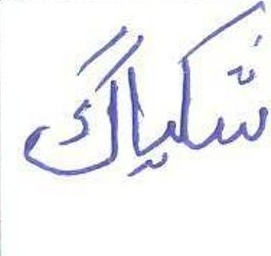 شکیاگ